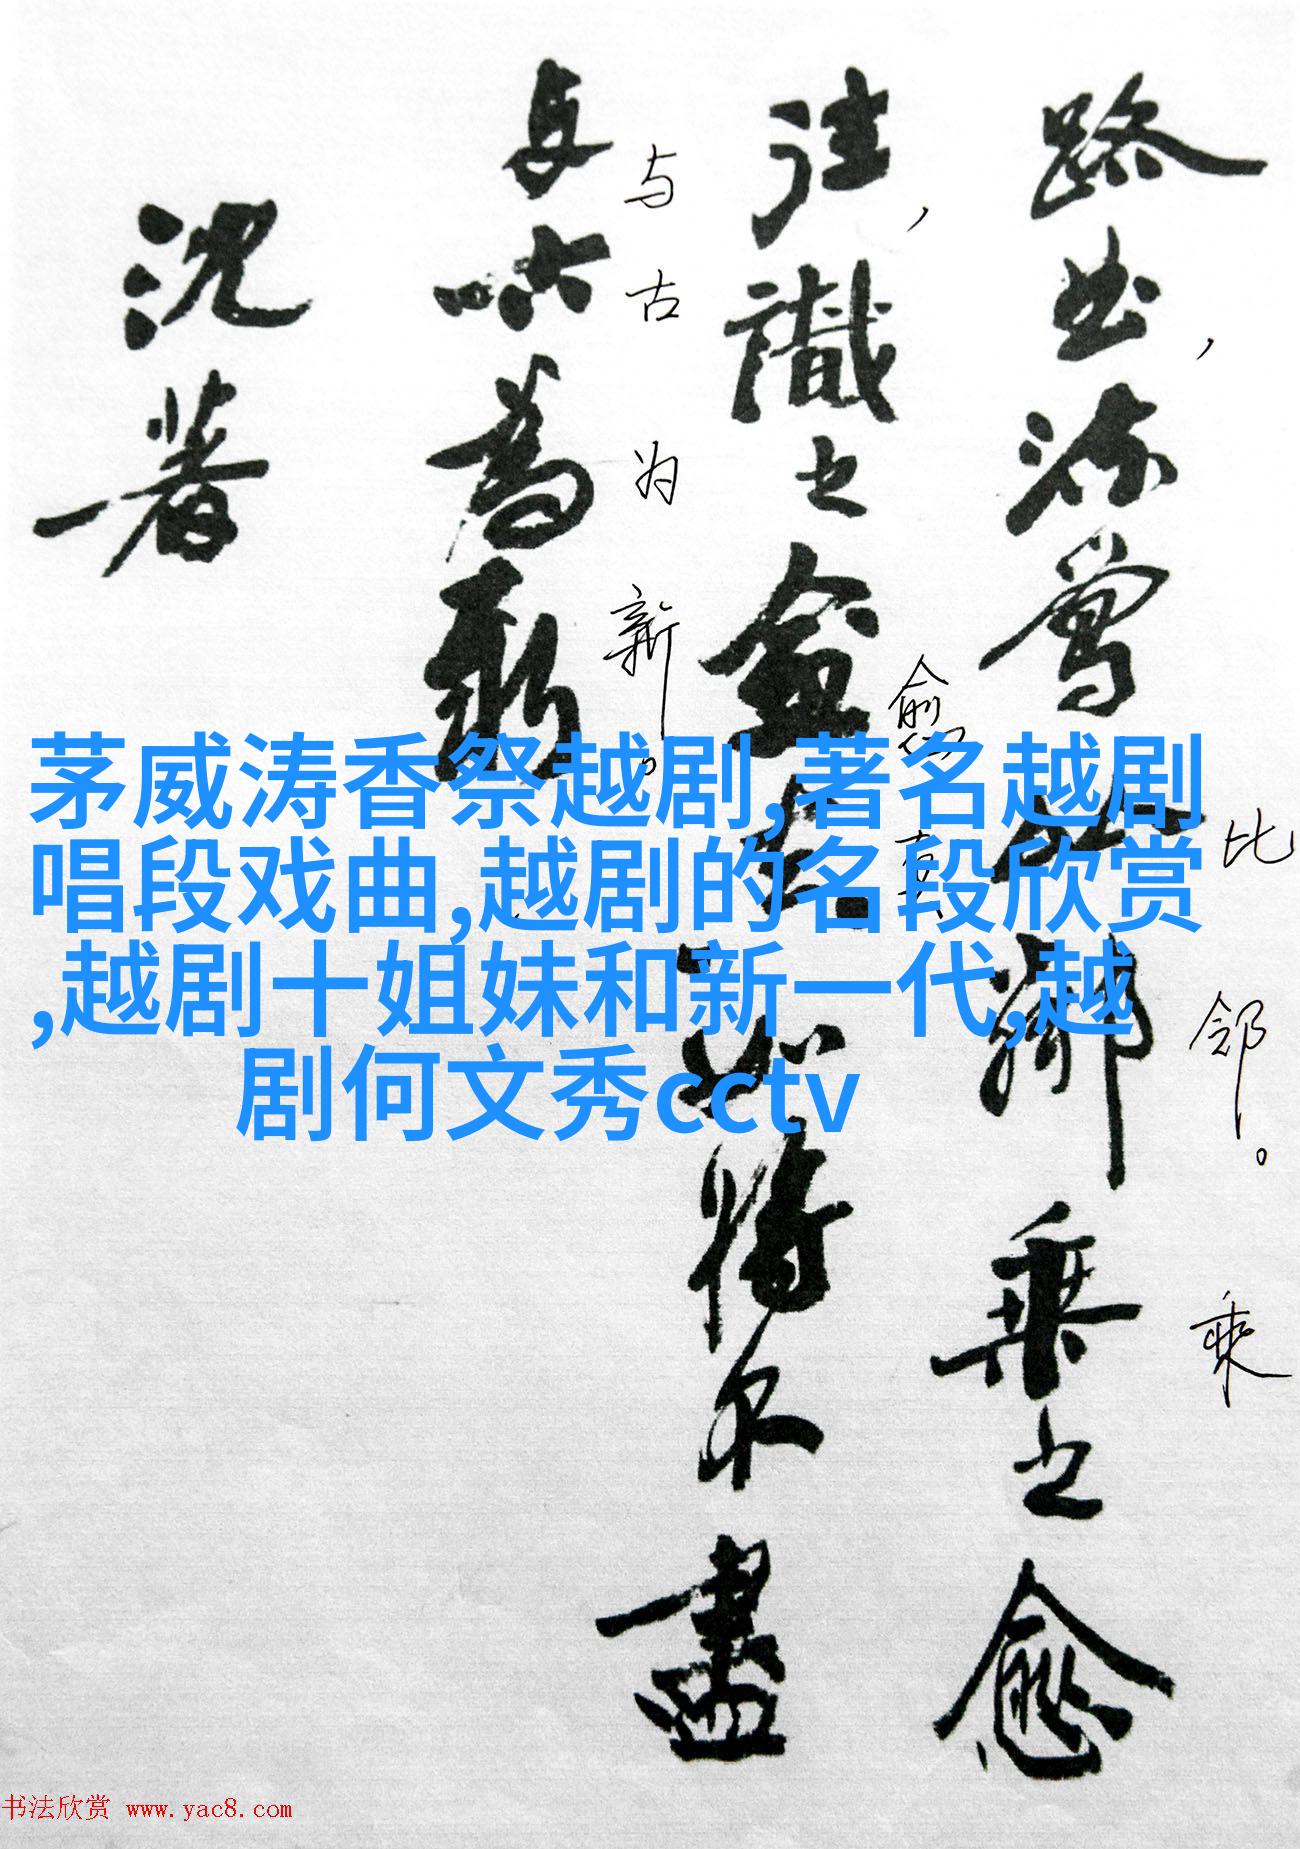 茅威涛香祭越剧,著名越剧
唱段戏曲,越剧的名段欣赏
,越剧十姐妹和新一代,越
剧何文秀cctv
路曲,流鶯比鄰乘之愈
比邻。乘
往,識之愈真如将不盡
愈真
与古為新
与古为新。
沈著
书法欣赏 www.yac8.com